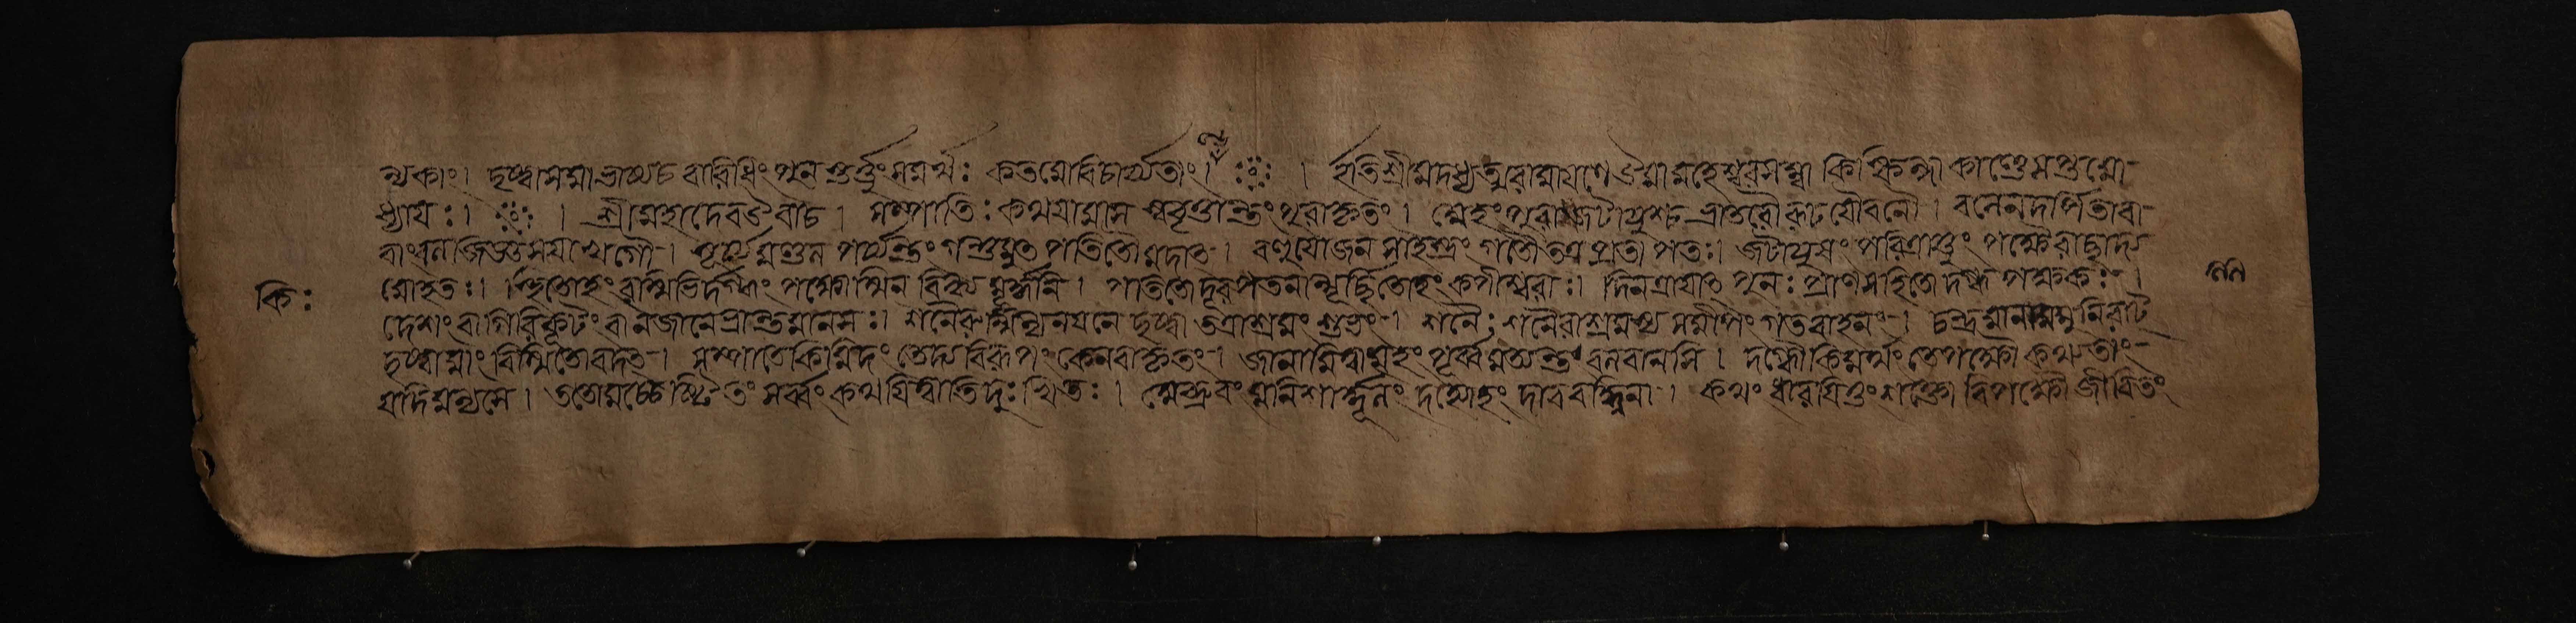 ন্থকাং। দৃষ্ট্বাসমাভাষ্যচ বারিধিং পুন র্গন্তুংসমর্থঃ কতমোবিচার্য্যতাং। ইতিশ্রীমদধ্যাত্মরামাযণে উমামহেশ্বরসম্বা কিষ্কিন্ধা কাণ্ডেসপ্তমো-
ধ্যাযঃ। । শ্রীমহাদেবউবাচ। সম্পাতিঃ কথযামাস স্ববৃত্তান্তংপুরাকৃতং। অহংপুরাজটাযুশ্চ ভ্রাতরৌরূঢযৌবনৌ। বলেনদর্পিতাবা-
বাংবলজিজ্ঞাসযাখগৌ। সূর্য্যমণ্ডল পর্য্যন্তংগন্তুমুৎ পতিতৌমদাৎ। বহুযোজন সাহস্রং গতৌতত্র প্রতাপতঃ। জটাযুষং পরিত্রাতুং পক্ষৈরাচ্ছাদ্য
কিঃ মোহতঃ। স্থিতোহংরশ্মিভির্দগ্ধ পক্ষোস্মিন্ বিন্ধ্যমূর্দ্ধনি। পতিতো দূরপতনান্মূর্চ্ছিতোহং কপীশ্বরাঃ। দিনত্রযাৎ পুনঃ প্রাণসহিতো দগ্ধপক্ষকঃ।
দেশংবাগিরিকূটংবা নজানেভ্রান্তমানসঃ। শনৈরুন্মিল্যনযনে দৃষ্ট্বা তত্রাশ্রমংশুভং। শনৈঃশনৈরাশ্রমস্য সমীপংগতবাহনং। চন্দ্রমানামমুনিরাট্
দৃষ্ট্বামাং বিস্মিতোবদৎ। সম্পাতেকিমিদং তেদ্যবিরূপং কেনবাকৃতং। জানামিত্বামহংপূর্ব্বমত্যন্তং বলবানসি। দগ্ধৌকিমর্থং তেপক্ষৌ কথ্যতাং
যদিমন্যসে। ততোমচ্চেষ্টিতং সর্ব্বং কথযিত্বাতিদুঃখিতঃ। অব্রবংমুনিশার্দ্দূলং দহ্যেহং দাববহ্নিনা। কথং ধারযিতুংশক্তো বিপক্ষো জীবিতং